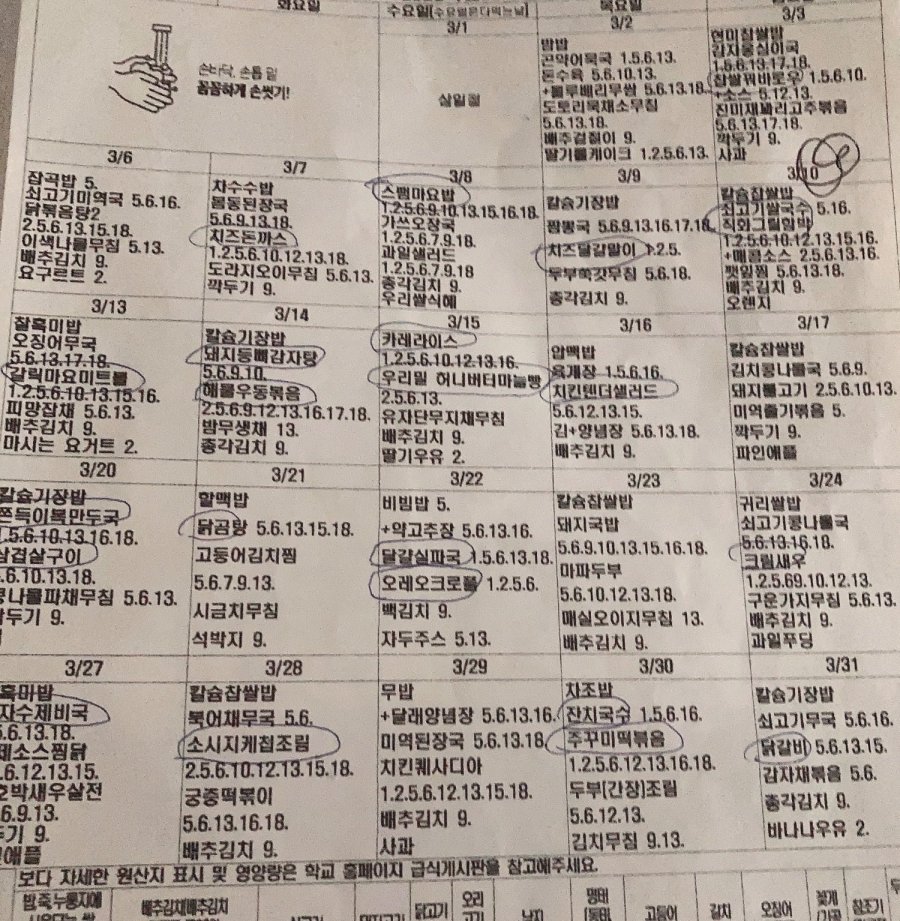 화요일
수요일[수요일은다먹는날]
목요일
3/1
3/2
3/3
손바닥, 손톱 밑
꼼꼼하게 손씻기!
삼일절
밥밥
곤약어묵국 1.5.6.13.
돈수육 5.6.10.13.
+블루베리무쌈 5.6.13.18.
도토리묵채소무침
5.6.13.18.
배추겉절이 9.
딸기롤케이크 1.2.5.6.13.
현미찹쌀밥
감자옹심이국
1.5.6.13.17.18.
찹쌀꿔바로우 1.5.6.10.
+소스 5.12.13.
진미채꽈리고추볶음
5.6.13.17.18.
깍두기 9.
사과
3/6
3/7
3/8
3/9
3/10
잡곡밥 5.
쇠고기미역국 5.6.16.
닭볶음탕2
2.5.6.13.15.18.
이색나물무침 5.13.
배추김치 9.
요구르트 2.
차수수밥
봄동된장국
5.6.9.13.18.
치즈돈까스
1.2.5.6.10.12.13.18.
도라지오이무침 5.6.13.
깍두기 9.
스팸마요밥
1.2.5.6.9.10.13.15.16.18.
가쓰오장국
1.2.5.6.7.9.18.
과일샐러드
1.2.5.6.7.9.18
총각김치 9.
우리쌀식혜
칼슘기장밥
짬뽕국 5.6.9.13.16.17.18.
치즈달걀말이 1.2.5.
두부쑥갓무침 5.6.18.
총각김치 9.
칼슘찹쌀밥
쇠고기쌀국수 5.16.
직화그릴함박
1.2.5.6.10.12.13.15.16.
+매콤소스 2.5.6.13.16.
깻잎찜 5.6.13.18.
배추김치 9.
오렌지
3/13
3/14
3/15
3/16
3/17
찰흑미밥
오징어무국
5.6.13.17.18.
갈릭마요미트볼
1.2.5.6.10.13.15.16.
피망잡채 5.6.13.
배추김치 9.
마시는 요거트 2.
칼슘기장밥
돼지등뼈감자탕
5.6.9.10.
해물우동볶음
2.5.6.9.12.13.16.17.18.
밤무생채 13.
총각김치 9.
카레라이스
1.2.5.6.10.12.13.16.
우리밀 허니버터마늘빵
2.5.6.13.
유자단무지채무침
배추김치 9.
딸기우유 2.
압맥밥
육개장 1.5.6.16.
치킨텐더샐러드
5.6.12.13.15.
김+양념장 5.6.13.18.
배추김치 9.
칼슘찹쌀밥
김치콩나물국 5.6.9.
돼지불고기 2.5.6.10.13.
미역줄기볶음 5.
깍두기 9.
파인애플
3/20
3/21
3/22
3/23
3/24
칼슘기장밥
쫀득이볶만두국
1.5.6.10.13.16.18.
삼겹살구이
5.6.10.13.18.
콩나물파채무침 5.6.13.
깍두기 9.
할맥밥
닭곰탕 5.6.13.15.18.
고등어김치찜
5.6.7.9.13.
시금치무침
석박지 9.
비빔밥 5.
+약고추장 5.6.13.16.
달걀실파국 1.5.6.13.18.
오레오크로플 1.2.5.6.
백김치 9.
자두주스 5.13.
칼슘찹쌀밥
돼지국밥
5.6.9.10.13.15.16.18.
마파두부
5.6.10.12.13.18.
매실오이지무침 13.
배추김치 9.
귀리쌀밥
쇠고기콩나물국
5.6.13.16.18.
크림새우
1.2.5.69.10.12.13.
구운가지무침 5.6.13.
배추김치 9.
과일푸딩
3/27
3/28
3/29
3/30
3/31
흑미밥
자수제비국
5.6.13.18.
제소스찜닭
.6.12.13.15.
호박새우살전
5.6.9.13.
두기 9.
인애플
칼슘찹쌀밥
북어채무국 5.6.
소시지케첩조림
2.5.6.10.12.13.15.18.
궁중떡볶이
5.6.13.16.18.
배추김치 9.
무밥
+달래양념장 5.6.13.16.
미역된장국 5.6.13.18.
치킨퀘사디아
1.2.5.6.12.13.15.18.
배추김치 9.
사과
차조밥
잔치국수 1.5.6.16.
주꾸미떡볶음
1.2.5.6.12.13.16.18.
두부[간장]조림
5.6.12.13.
김치무침 9.13.
칼슘기장밥
쇠고기무국 5.6.16.
닭갈비 5.6.13.15.
감자채볶음 5.6.
총각김치 9.
바나나우유 2.
보다 자세한 원산지 표시 및 영양량은 학교 홈페이지 급식게시판을 참고해주세요.
밥,죽,누룽지에
배추김치배추김치
닭고기
오리
명태
고등어
갈치
오징어
꽃게
참조기
낙지